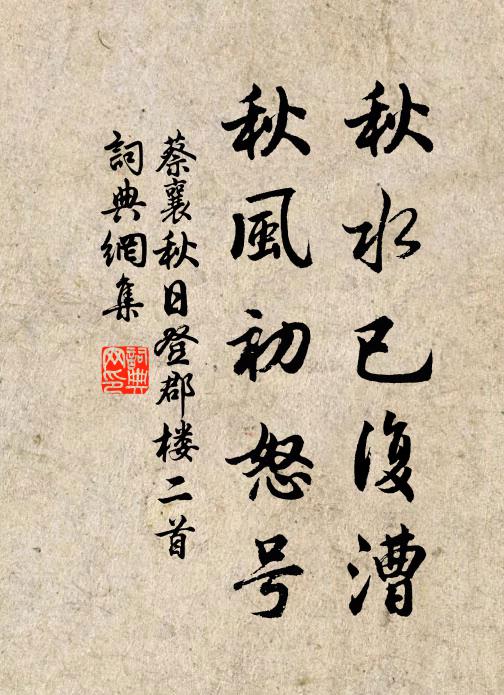 秋水已復漕
秋風初怒号
蔡襄秋日登郡楼二首
詞典網集
詞典網印